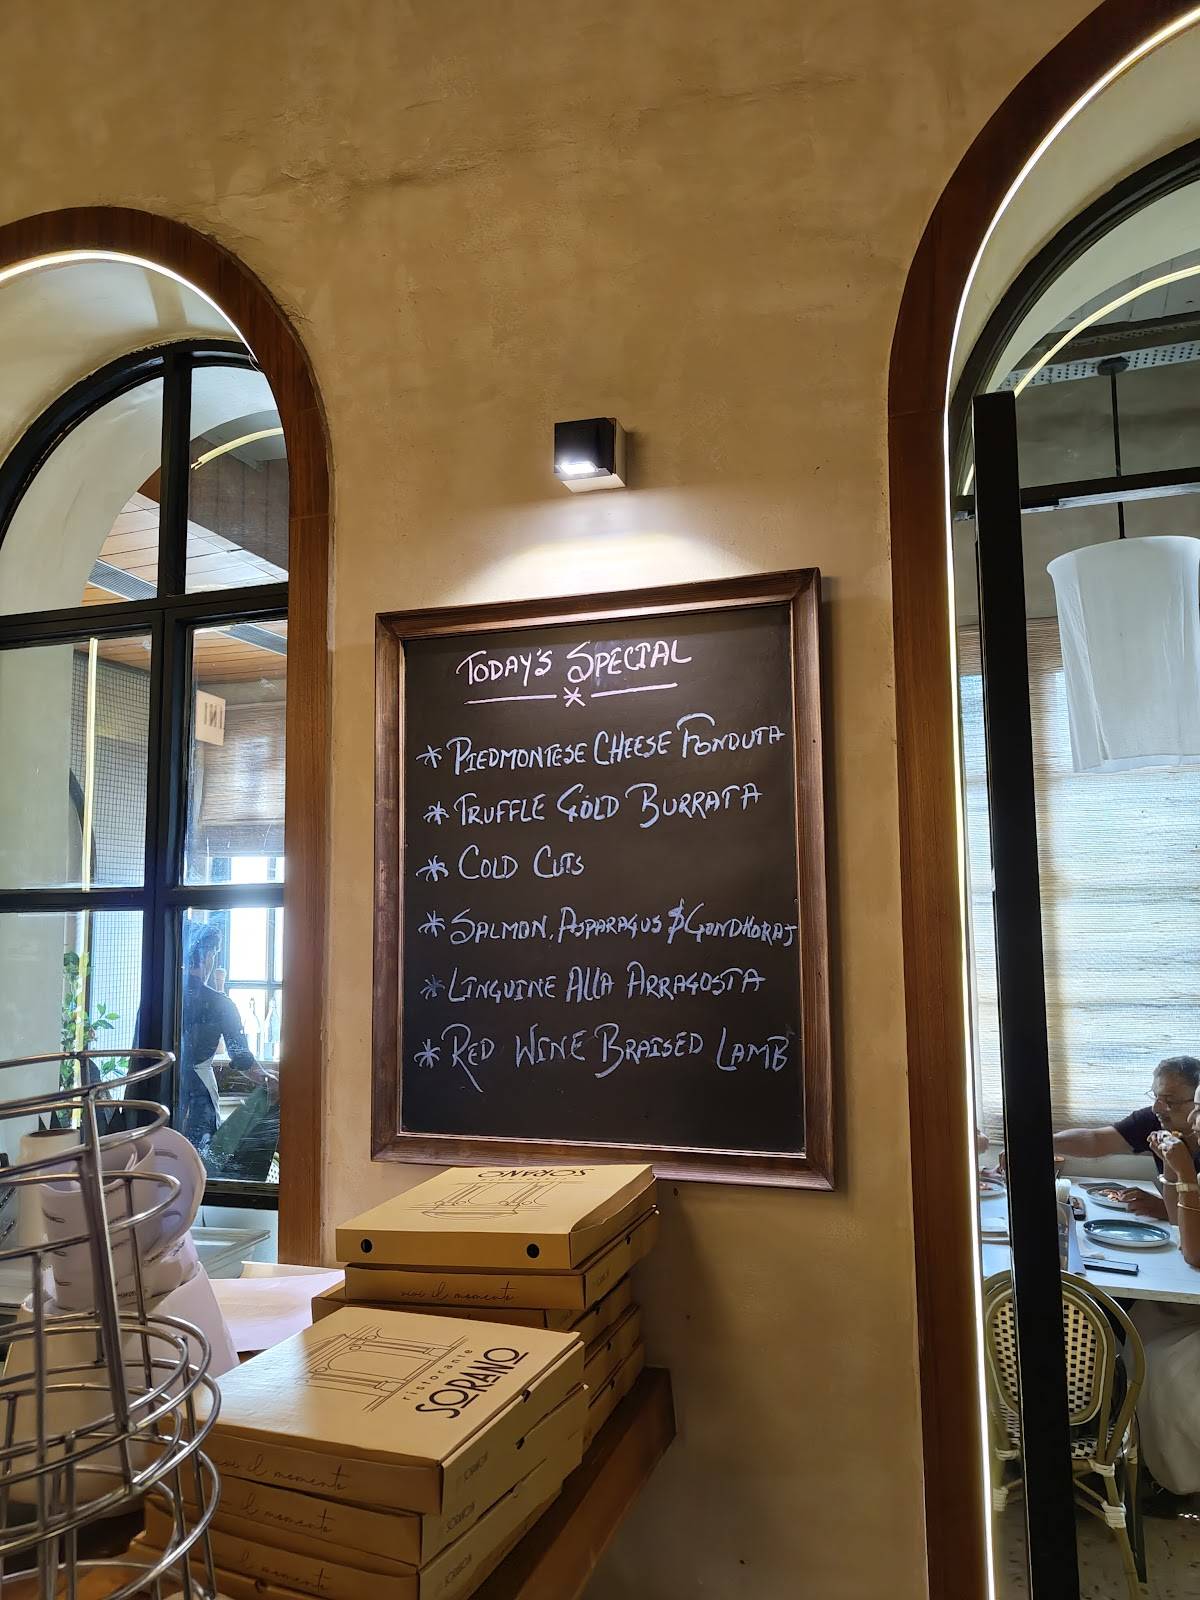 TODAY'S SPECIAL
* PIEDMONTESE CHEESE FONDUTA
* TRUFFLE GOLD BURRATA
* COLD CUTS
* SALMON, ASPARAGUS & GONDHORAJ
* LINGUINE ALLA ARRAGOSTA
* RED WINE BRAISED LAMB
SORANO
vivi il momento
ristorante
SORANO
vivi il momento
SORANO
vivi il momento
SORANO